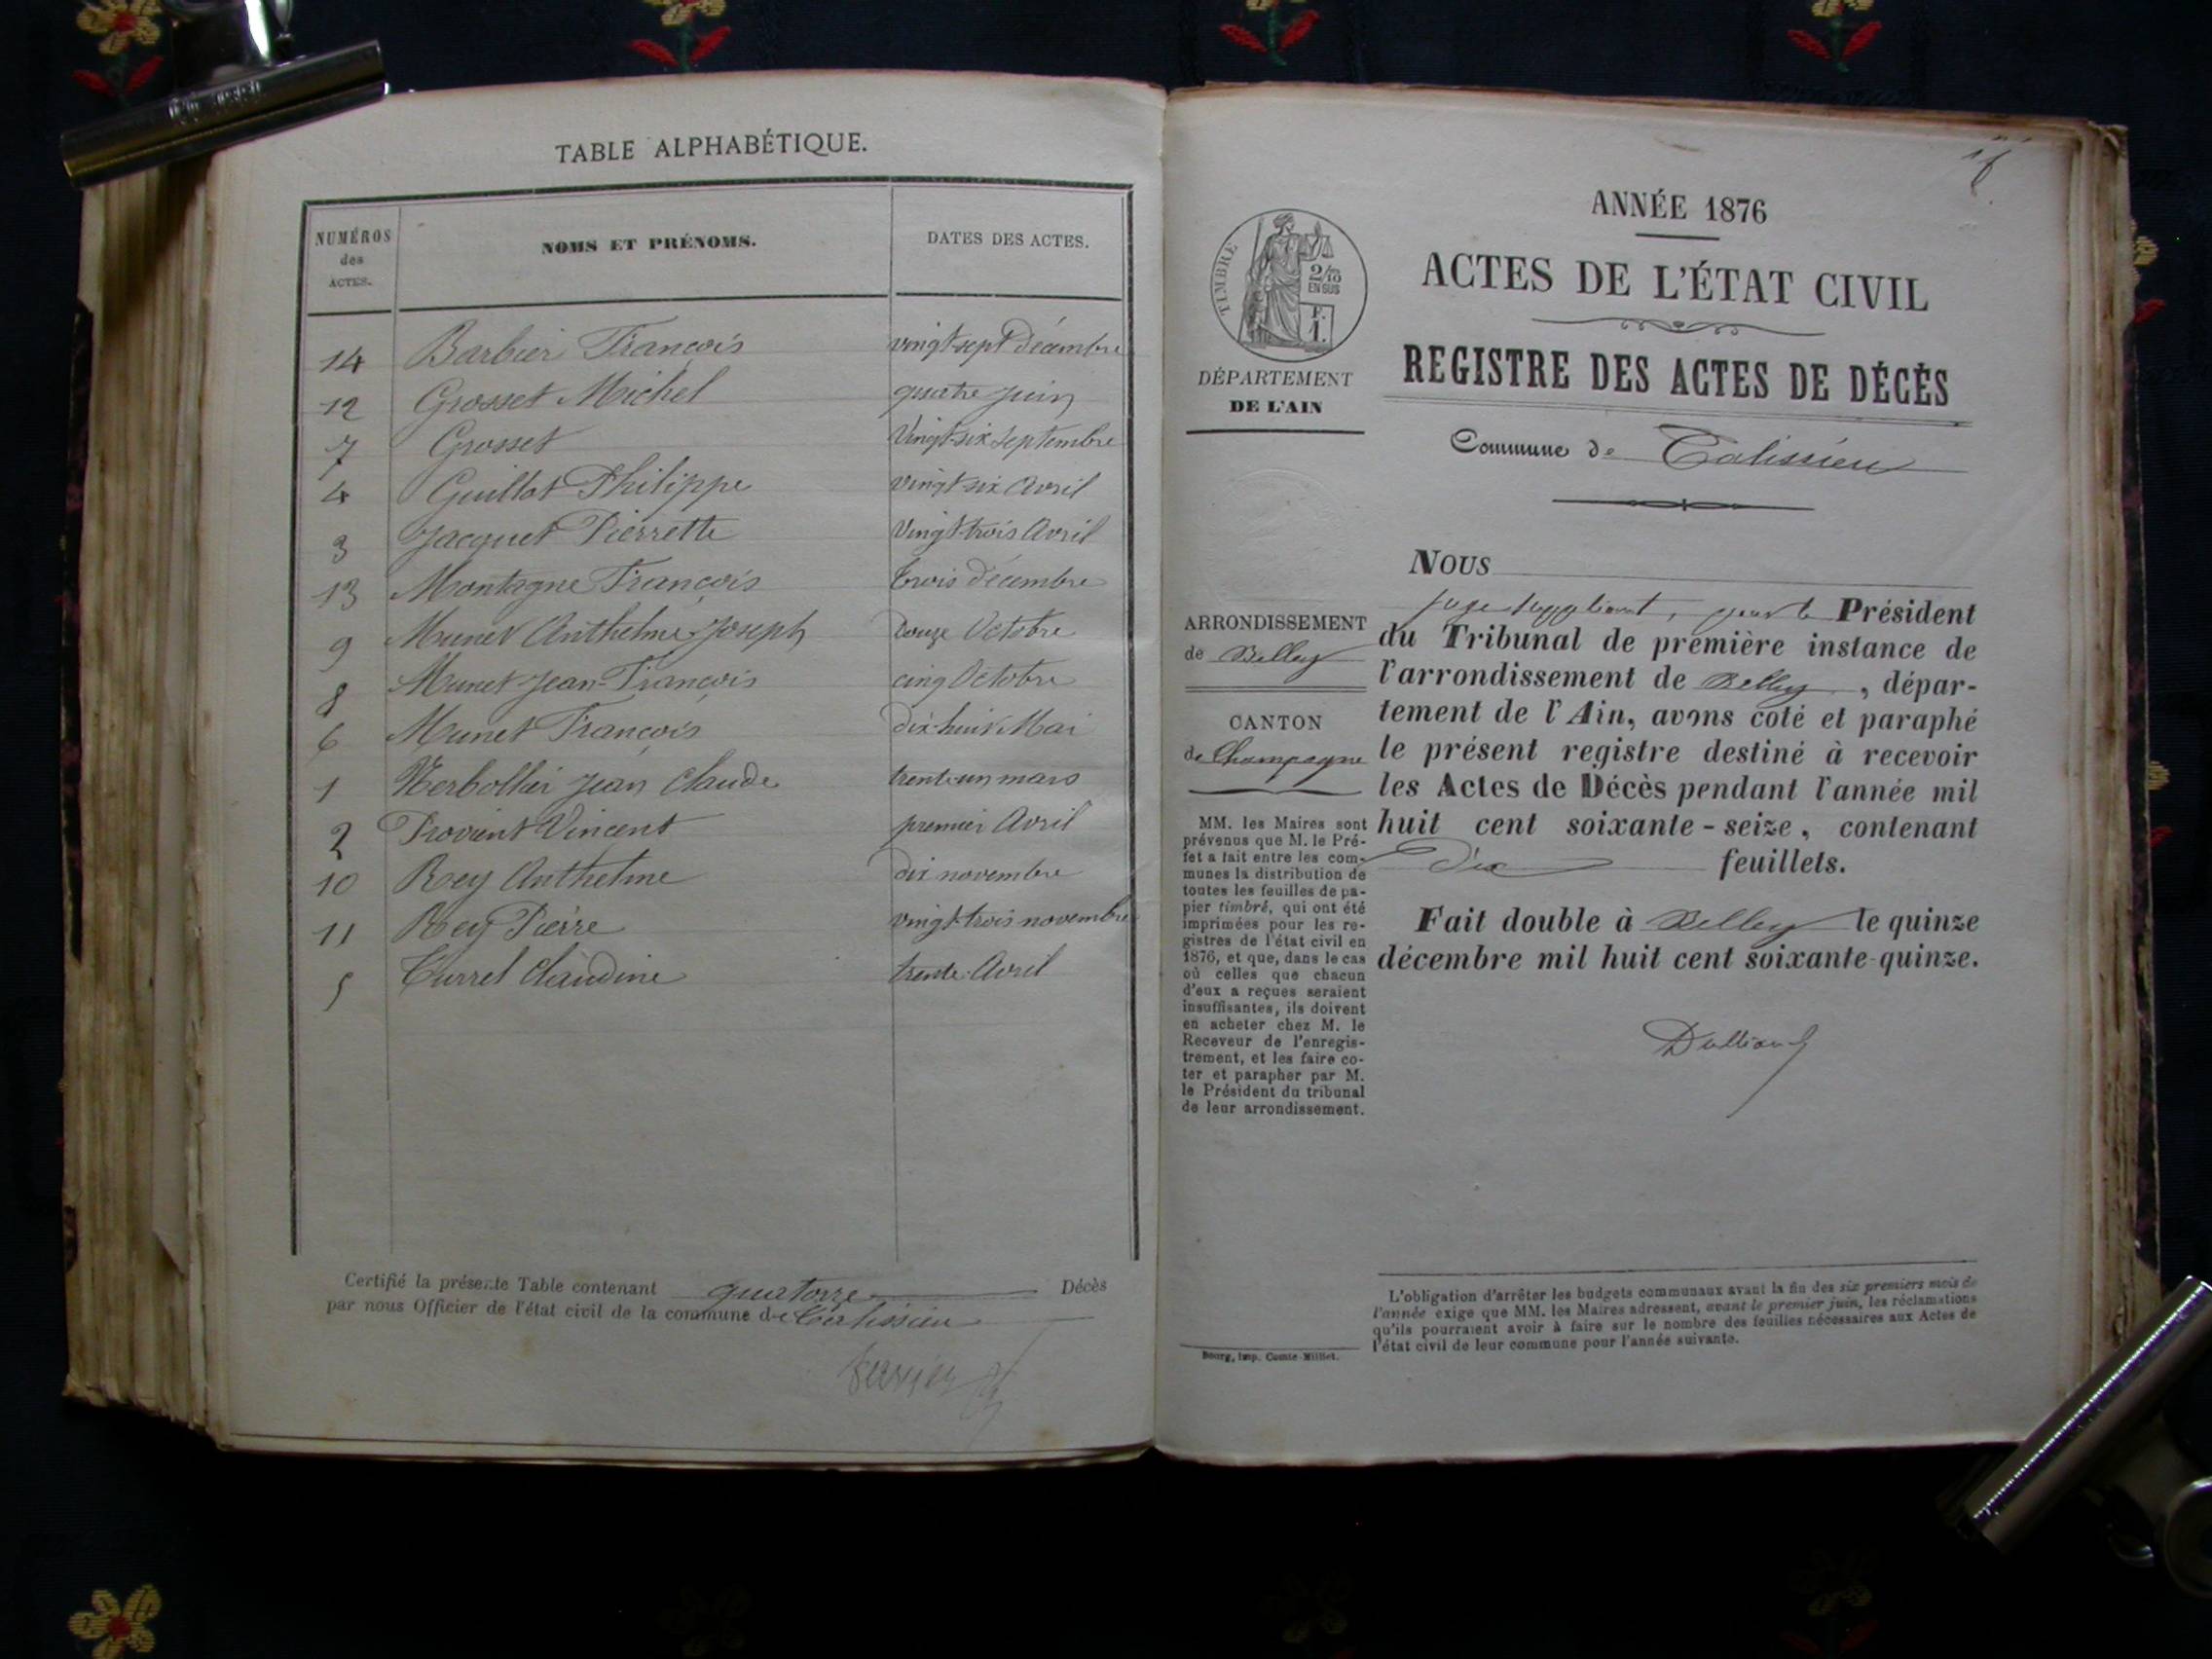 TABLE ALPHABÉTIQUE.
NUMÉROS
des
ACTES.
NOMS ET PRÉNOMS.
DATES DES ACTES.
14 Barbier François vingt sept décembre
12 Grosset Michel quatre juin
7 Grosset Vingt-six septembre
4 Guillot Philippe vingt six Avril
3 Jacquet Pierrette Vingt-trois Avril
13 Montagne François trois décembre
9 Munet Anthelme Joseph Douze Octobre
8 Munet Jean-François cinq Octobre
6 Munet François dix-huit Mai
1 Jean Claude trente-un mars
2 Provent Vincent premier Avril
10 Rey Anthelme dix novembre
11 Rey Pierre vingt-trois novembre
5 Turrel Claudine trente Avril
Certifié la présente Table contenant quatorze Décès
par nous Officier de l'état civil de la commune de Talissieu
ANNÉE 1876
ACTES DE L'ÉTAT CIVIL
REGISTRE DES ACTES DE DÉCÈS
Commune de Talissieu
TIMBRE
2/10
EN SUS
F.
1.
DÉPARTEMENT
DE L'AIN
ARRONDISSEMENT
de Belley
CANTON
de Champagne
MM. les Maires sont
prévenus que M. le Pré-
fet a fait entre les com-
munes la distribution de
toutes les feuilles de pa-
pier timbré, qui ont été
imprimées pour les re-
gistres de l'état civil en
1876, et que, dans le cas
où celles que chacun
d'eux a reçues seraient
insuffisantes, ils doivent
en acheter chez M. le
Receveur de l'enregis-
trement, et les faire co-
ter et parapher par M.
le Président du tribunal
de leur arrondissement.
NOUS
juge suppléant, pour le Président
du Tribunal de première instance de
l'arrondissement de Belley, dépar-
tement de l'Ain, avons coté et paraphé
le présent registre destiné à recevoir
les Actes de Décès pendant l'année mil
huit cent soixante-seize, contenant
dix feuillets.
Fait double à Belley le quinze
décembre mil huit cent soixante-quinze.
L'obligation d'arrêter les budgets communaux avant la fin des six premiers mois de
l'année exige que MM. les Maires adressent, avant le premier juin, les réclamations
qu'ils pourraient avoir à faire sur le nombre des feuilles nécessaires aux Actes de
l'état civil de leur commune pour l'année suivante.
Bourg, imp. Comte-Milliet.